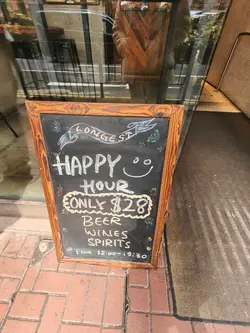 LONGEST
HAPPY
HOUR
ONLY $28
BEER
WINES
SPIRITS
from 12:00-19:30